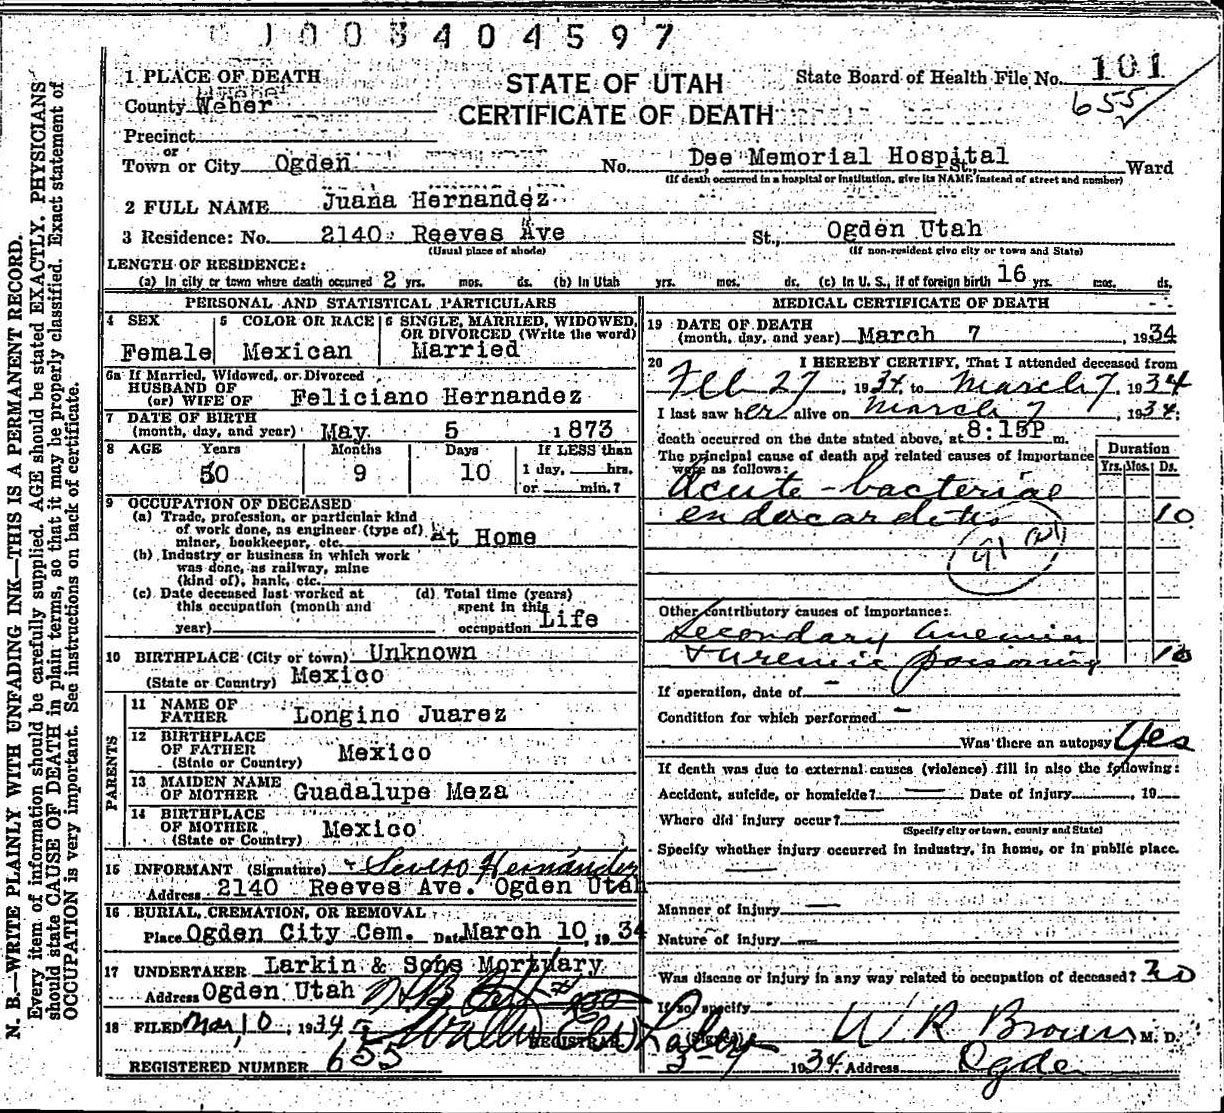 01003404597
1 PLACE OF DEATH
STATE OF UTAH
State Board of Health File No. 101
County Weber
CERTIFICATE OF DEATH
655
Precinct
or
Town or City Ogden No. Dee Memorial Hospital St., Ward
(If death occurred in a hospital or institution, give its NAME instead of street and number)
2 FULL NAME Juana Hernandez
3 Residence: No. 2140 Reeves Ave St., Ogden Utah
(Usual place of abode) (If non-resident give city or town and State)
LENGTH OF RESIDENCE:
(a) In city or town where death occurred 2 yrs. mos. ds. (b) In Utah yrs. mos. ds. (c) In U. S., if of foreign birth 16 yrs. mos. ds.
PERSONAL AND STATISTICAL PARTICULARS
4 SEX
Female
5 COLOR OR RACE
Mexican
6 SINGLE, MARRIED, WIDOWED,
OR DIVORCED (Write the word)
Married
6a If Married, Widowed, or Divorced
HUSBAND OF
(or) WIFE OF Feliciano Hernandez
7 DATE OF BIRTH
(month, day, and year) May 5 1873
8 AGE Years Months Days If LESS than
50 9 10 1 day, hrs.
or min.?
9 OCCUPATION OF DECEASED
(a) Trade, profession, or particular kind
of work done, as engineer (type of)
miner, bookkeeper, etc. At Home
(b) Industry or business in which work
was done, as railway, mine
(kind of), bank, etc.
(c) Date deceased last worked at
this occupation (month and
year)
(d) Total time (years)
spent in this
occupation Life
10 BIRTHPLACE (City or town) Unknown
(State or Country) Mexico
PARENTS
11 NAME OF
FATHER Longino Juarez
12 BIRTHPLACE
OF FATHER Mexico
(State or Country)
13 MAIDEN NAME
OF MOTHER Guadalupe Meza
14 BIRTHPLACE
OF MOTHER Mexico
(State or Country)
15 INFORMANT (Signature) Severo Hernández
Address 2140 Reeves Ave. Ogden Utah
16 BURIAL, CREMATION, OR REMOVAL
Place Ogden City Cem. Date March 10, 1934
17 UNDERTAKER Larkin & Sons Mortuary
Address Ogden Utah
18 FILED Mar 10, 1934
REGISTRAR
REGISTERED NUMBER 655
MEDICAL CERTIFICATE OF DEATH
19 DATE OF DEATH
(month, day, and year) March 7 , 1934
20 I HEREBY CERTIFY, That I attended deceased from
Feb 27, 1934, to March 7, 1934
I last saw her alive on March 7, 1934;
death occurred on the date stated above, at 8:15P m.
The principal cause of death and related causes of importance
were as follows:
Duration
Yrs. Mos. Ds.
Acute-bacterial
endocarditis 10
91
Other contributory causes of importance:
Secondary Anemia
+ uremic poisoning 10
If operation, date of -
Condition for which performed -
Was there an autopsy Yes
If death was due to external causes (violence) fill in also the following:
Accident, suicide, or homicide? — Date of injury , 19
Where did injury occur? —
(Specify city or town, county and State)
Specify whether injury occurred in industry, in home, or in public place.
—
Manner of injury —
Nature of injury —
Was disease or injury in any way related to occupation of deceased? No
If so, specify
(Signed) W R Brown, M. D.
3-7 1934. Address Ogden
N. B.—WRITE PLAINLY WITH UNFADING INK—THIS IS A PERMANENT RECORD.
Every item of information should be carefully supplied. AGE should be stated EXACTLY. PHYSICIANS
should state CAUSE OF DEATH in plain terms, so that it may be properly classified. Exact statement of
OCCUPATION is very important. See instructions on back of certificate.